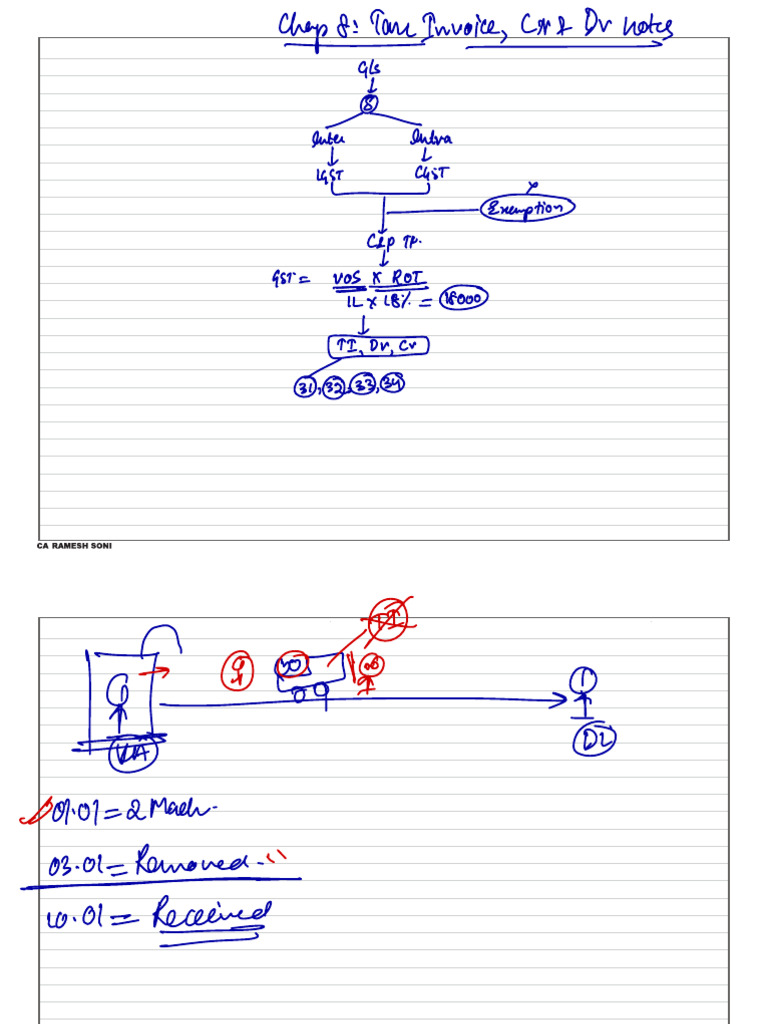 Chap 8: Tax Invoice, Cr & Dr notes
G/s
8
Inter Intra
IGST CGST
Exemption
C&P Tr.
GST = VOS x ROT
1L x 18% = 18000
TI, Dr, Cr
31, 32, 33, 34
CA RAMESH SONI
TI
DL
01.01 = 2 Mach.
03.01 = Removed.
10.01 = Received